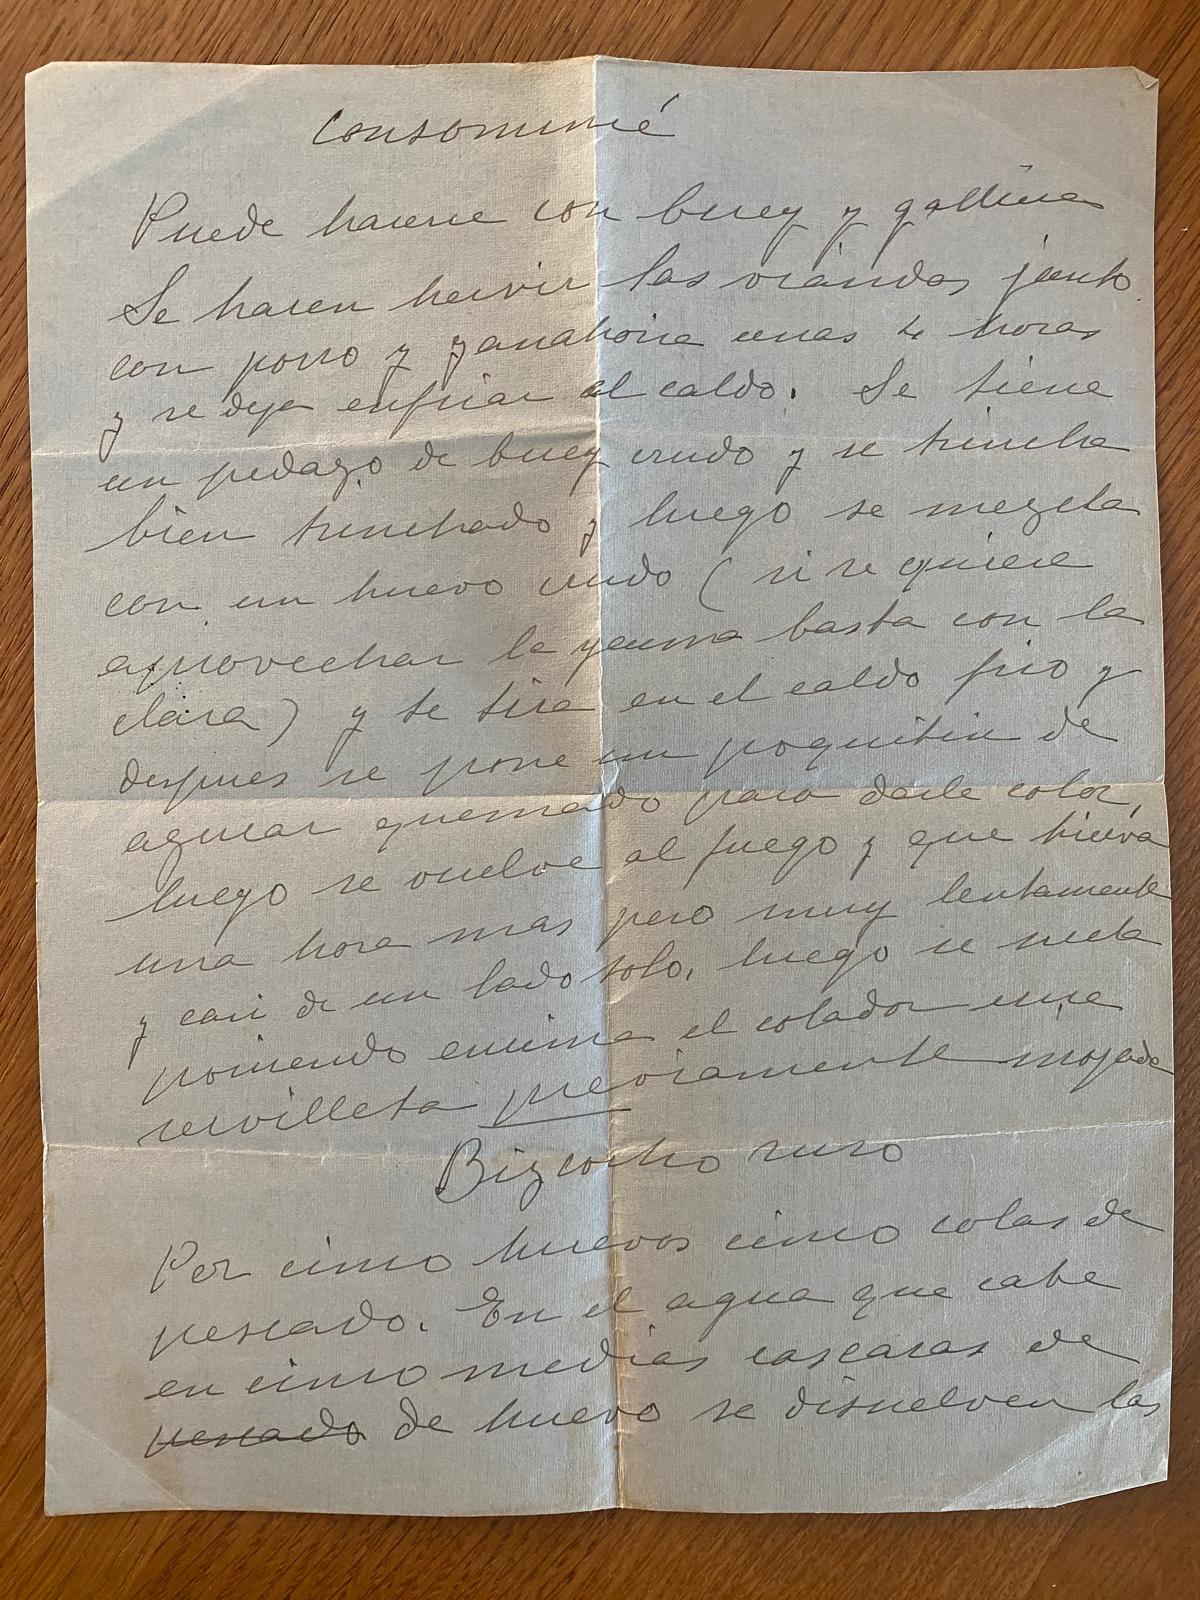 Consommé
Puede hacerse con buey y gallina
Se hacen hervir las viandas junto
con porro y zanahoria unas 4 horas
y se deja enfriar el caldo. Se tiene
un pedazo de buey crudo y se trincha
bien trinchado y luego se mezcla
con un huevo crudo (si se quiere
aprovechar la yema basta con la
clara) y se tira en el caldo frio y
despues se pone un poquitin de
azucar quemado para darle color,
luego se vuelve al fuego y que hierva
una hora mas pero muy lentamente
y casi de un lado solo. luego se cuela
poniendo encima el colador una
servilleta previamente mojada
Bizcocho ruso
Por cinco huevos cinco colas de
pescado. En el agua que cabe
en cinco medias cascaras de
pescado de huevo se disuelven las